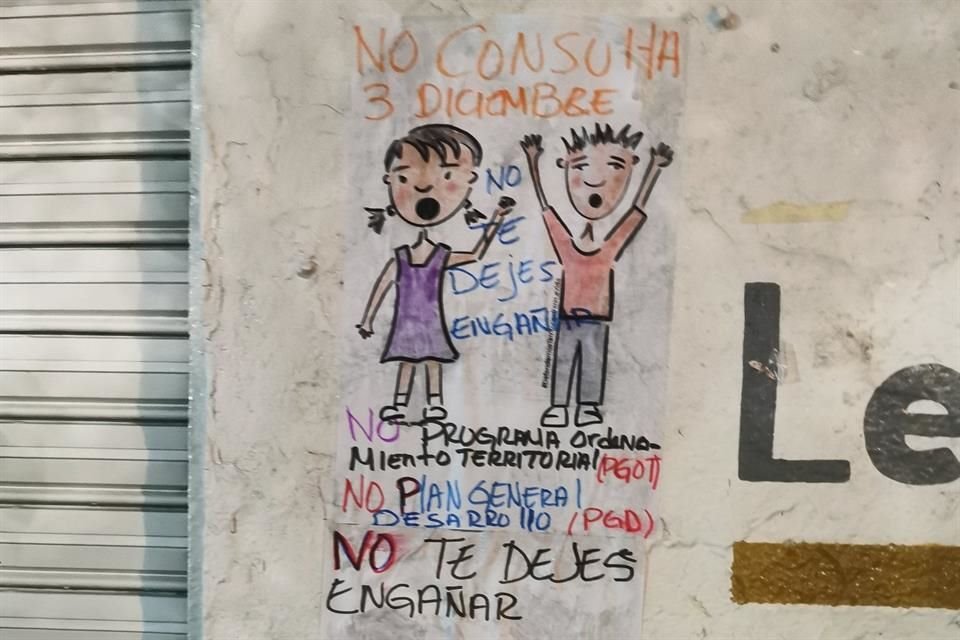 NO CONSULTA
3 DICIEMBRE
NO
TE
DEJES
ENGAÑAR
NO PROGRAMA Ordena-
Miento TERRITORIAL (PGOT)
NO PlAN GENERAl
DESARROllO (PGD)
NO TE DEJES
ENGAÑAR
Le